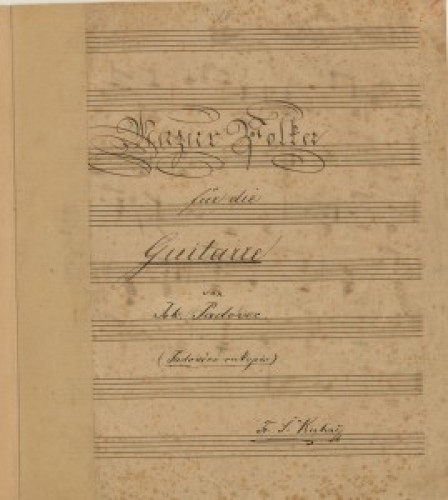 Mazur Polka
für die
Guitarre
von
Joh. Padovec
(Padovčev rukopis)
Fr. Š. Kuhač